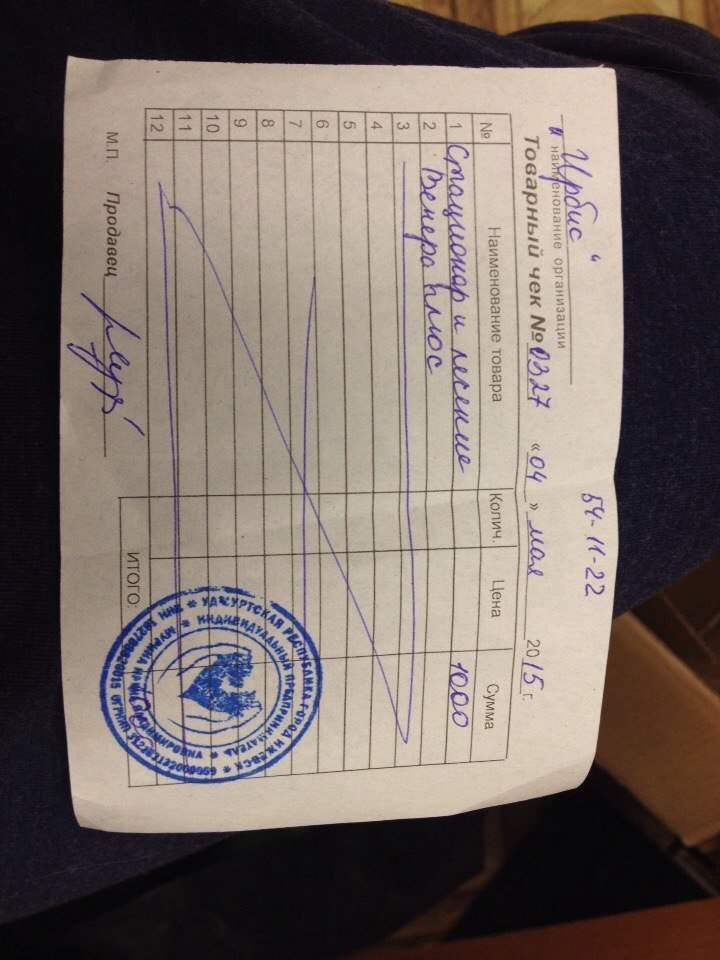 54-11-22
"Ирбис"
наименование организации
Товарный чек № 0327 «04» мая 2015 г.
№ Наименование товара Колич. Цена Сумма
1 Стационар и лечение 1000
2 Венера плюс
3
4
5
6
7
8
9
10
11
12
ИТОГО:
М.П. Продавец
УДМУРТСКАЯ РЕСПУБЛИКА ГОРОД ИЖЕВСК
ИНДИВИДУАЛЬНЫЙ ПРЕДПРИНИМАТЕЛЬ